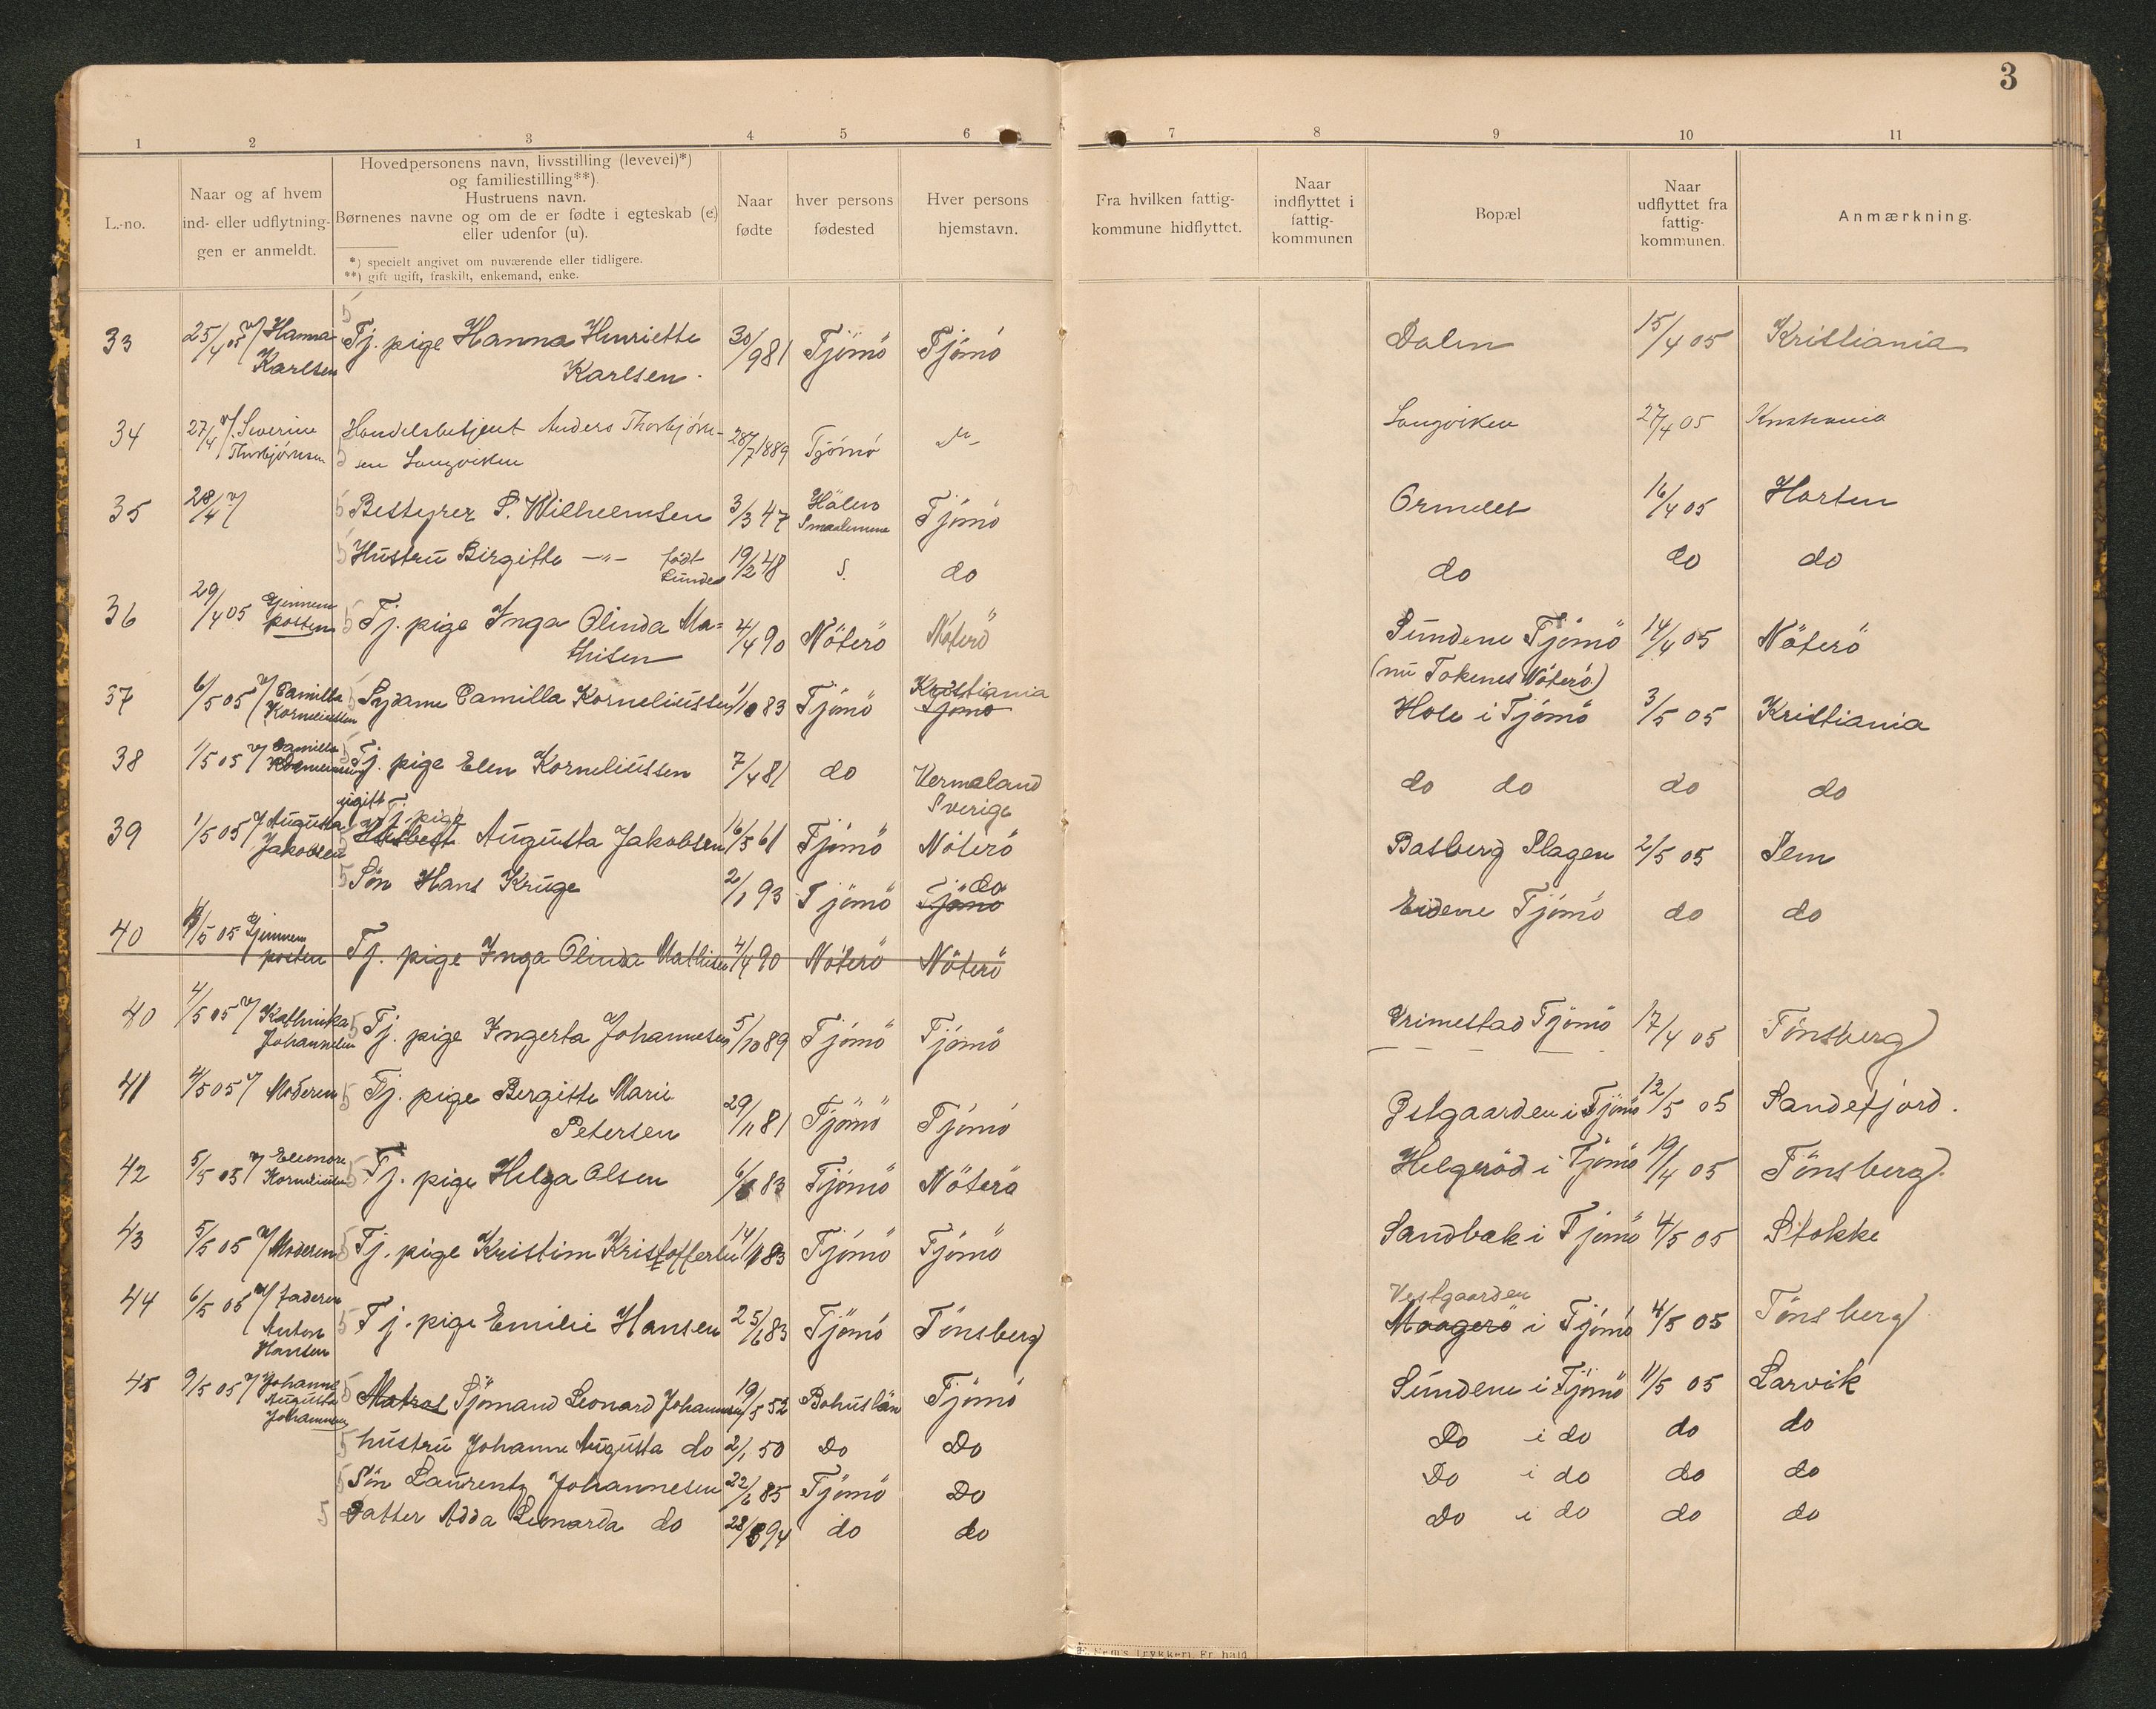 3
1 2 3 4 5 6 7 8 9 10 11
L.-no.
Naar og af hvem
ind- eller udflytnin-
gen er anmeldt.
Hovedpersonens navn, livsstilling (levevei)*)
og familiestilling**).
Hustruens navn.
Børnenes navne og om de er fødte i egteskab (e)
eller udenfor (u).
*) specielt angivet om nuværende eller tidligere.
**) gift ugift, fraskilt, enkemand, enke.
Naar
fødte
hver persons
fødested
Hver persons
hjemstavn.
Fra hvilken fattig-
kommune hidflyttet.
Naar
indflyttet i
fattig-
kommunen
Bopæl
Naar
udflyttet fra
fattig-
kommunen.
Anmærkning.
33 25/4 05 v/ Hanna Tj. pige Hanna Henriette 30/9 81 Tjömö Tjömö Dalen 15/4 05 Kristiania
Karlsen Karlsen.
34 27/4 v/ Severine Handelsbetjent Anders Thorbjörn- 28/7 1889 Tjömö Langviken 27/4 05 Kristiania
Thorbjörnsen sen Langviken
35 28/4 v/ Bestyrer S. Wilhelmsen 3/3 47 Hölen Smaalenene Tjömö Ormelet 16/4 05 Horten
Hustru Birgitte —"— födt 19/2 48 S. do do do do
Sundes
36 29/4 05 Gjennem posten Tj. pige Inga Olinda Ma= 4/4 90 Nöterö Nöterö Sundene Tjömö 14/4 05 Nöterö
thisen (nu Tokenes Nöterö)
37 6/5 05 v/ Camilla Korneliussen Sydame Camilla Korneliussen 1/10 83 Tjömö Kristiania Tjömö Hole i Tjömö 3/5 05 Kristiania
38 1/5 05 v/ Camilla Tj. pige Elen Korneliussen 7/4 81 do Vermaland Sverige do do do do
ugift
Tj. pige
39 1/5 05 v/ Augusta Jakobsen Husbest Augusta Jakobsen 16/5 61 Tjömö Nöterö Basberg Slagen 2/5 05 Sem
Sön Hans Kruge 2/1 93 Tjömö do Tjömö Eidene Tjömö do do
40 /5 05 Gjennem posten Tj. pige Inga Olinda Mathisen 4/4 90 Nöterö Nöterö
40 4/5 05 v/ Kathinka Johannesen Tj. pige Ingerta Johannesen 5/10 89 Tjömö Tjömö Grimestad Tjömö 17/4 05 Tönsberg
41 4/5 05 v/ Moderen Tj. pige Bergitte Marie 29/11 81 Tjömö Tjömö Östgaarden i Tjömö 12/5 05 Sandefjord.
Petersen
42 5/5 05 v/ Elenore Korneliusen Tj. pige Helga Olsen 6/6 83 Tjömö Nöterö Helgeröd i Tjömö 19/4 05 Tönsberg.
43 5/5 05 v/ Moderen Tj. pige Kristine Kristoffersen 14/1 83 Tjömö Tjömö Sandbæk i Tjömö 4/5 05 Stokke
Vestgaarden
44 6/5 05 v/ faderen Anton Hansen Tj. pige Emilie Hansen 25/6 83 Tjömö Tönsberg Maagerö i Tjömö 4/5 05 Tönsberg
45 9/5 05 v/ Johanne Augusta Johannesen Matros Sjömand Leonard Johannesen 19/5 52 Bohuslän Tjömö Sundene i Tjömö 11/5 05 Larvik
hustru Johanne Augusta do 2/1 50 Do Do Do i do do do
Sön Laurentz Johannesen 22/6 85 Tjömö Do Do i do do do
Datter Adda Leonarda do 28/8 94 do do Do i do do do